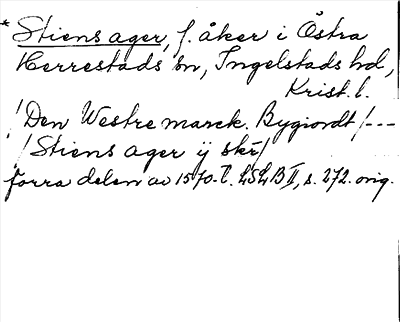 * Stiens ager, f. åker i Östra
Herrestads sn, Ingelstads hd,
Krist. l.
/Den Westre marck. Bygiordt/---
/Stiens ager ÿ skr/
förra delen av 1570-t. LSLB II, s. 272. orig.